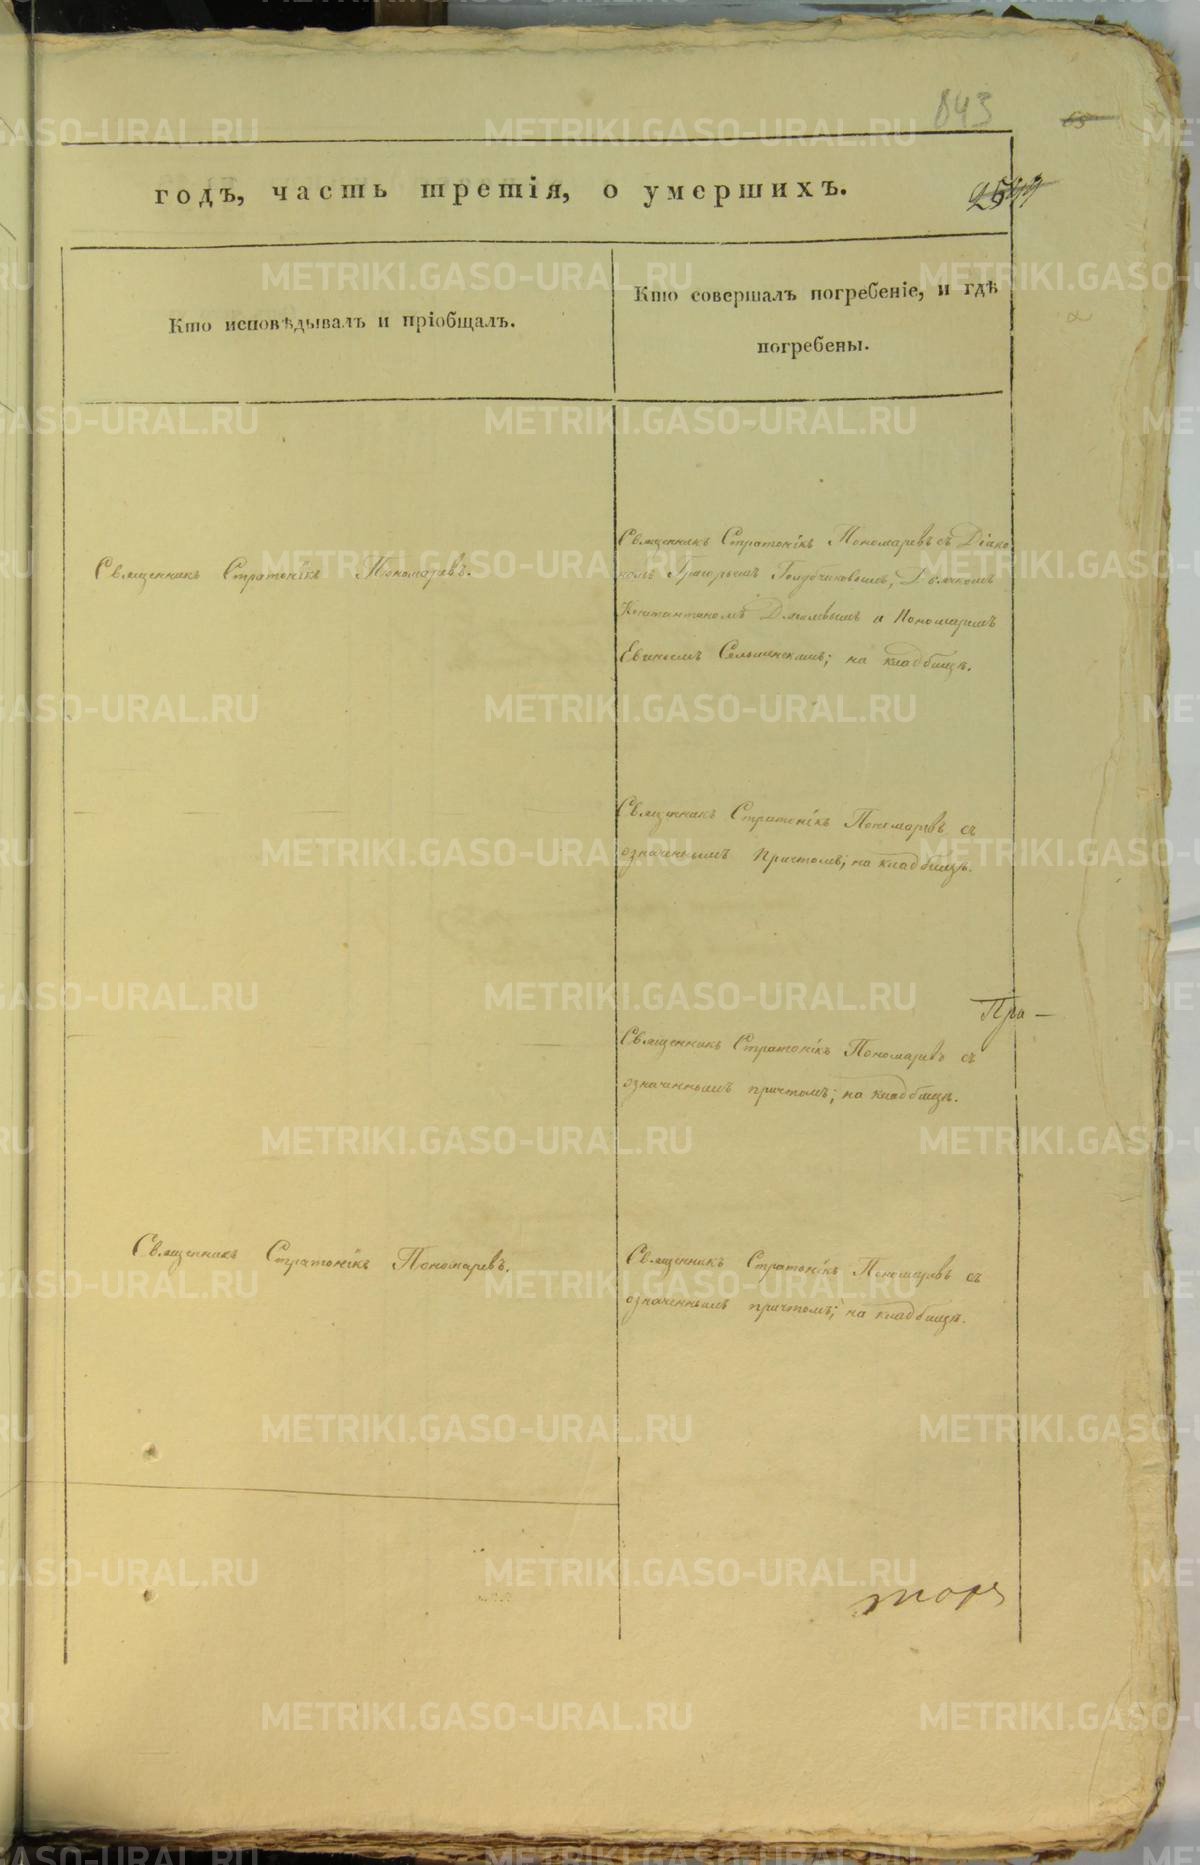 843
65
годъ, часть третія, о умершихъ.
Кто исповѣдывалъ и пріобщалъ.
Кто совершалъ погребеніе, и гдѣ
погребены.
Священникъ Стратоникъ Пономаревъ.
Священникъ Стратоникъ Пономаревъ съ Діако-
номъ Григорьемъ Голубчиковымъ, Дьячкомъ
Константиномъ и Пономаремъ
на кладбищѣ.
Священникъ Стратоникъ Пономаревъ съ
означеннымъ Причтомъ; на кладбищѣ.
Пра-
Священникъ Стратоникъ Пономаревъ съ
означеннымъ причтомъ; на кладбищѣ.
Священникъ Стратоникъ Пономаревъ.
Священникъ Стратоникъ Пономаревъ съ
означеннымъ причтомъ; на кладбищѣ.
METRIKI.GASO-URAL.RU